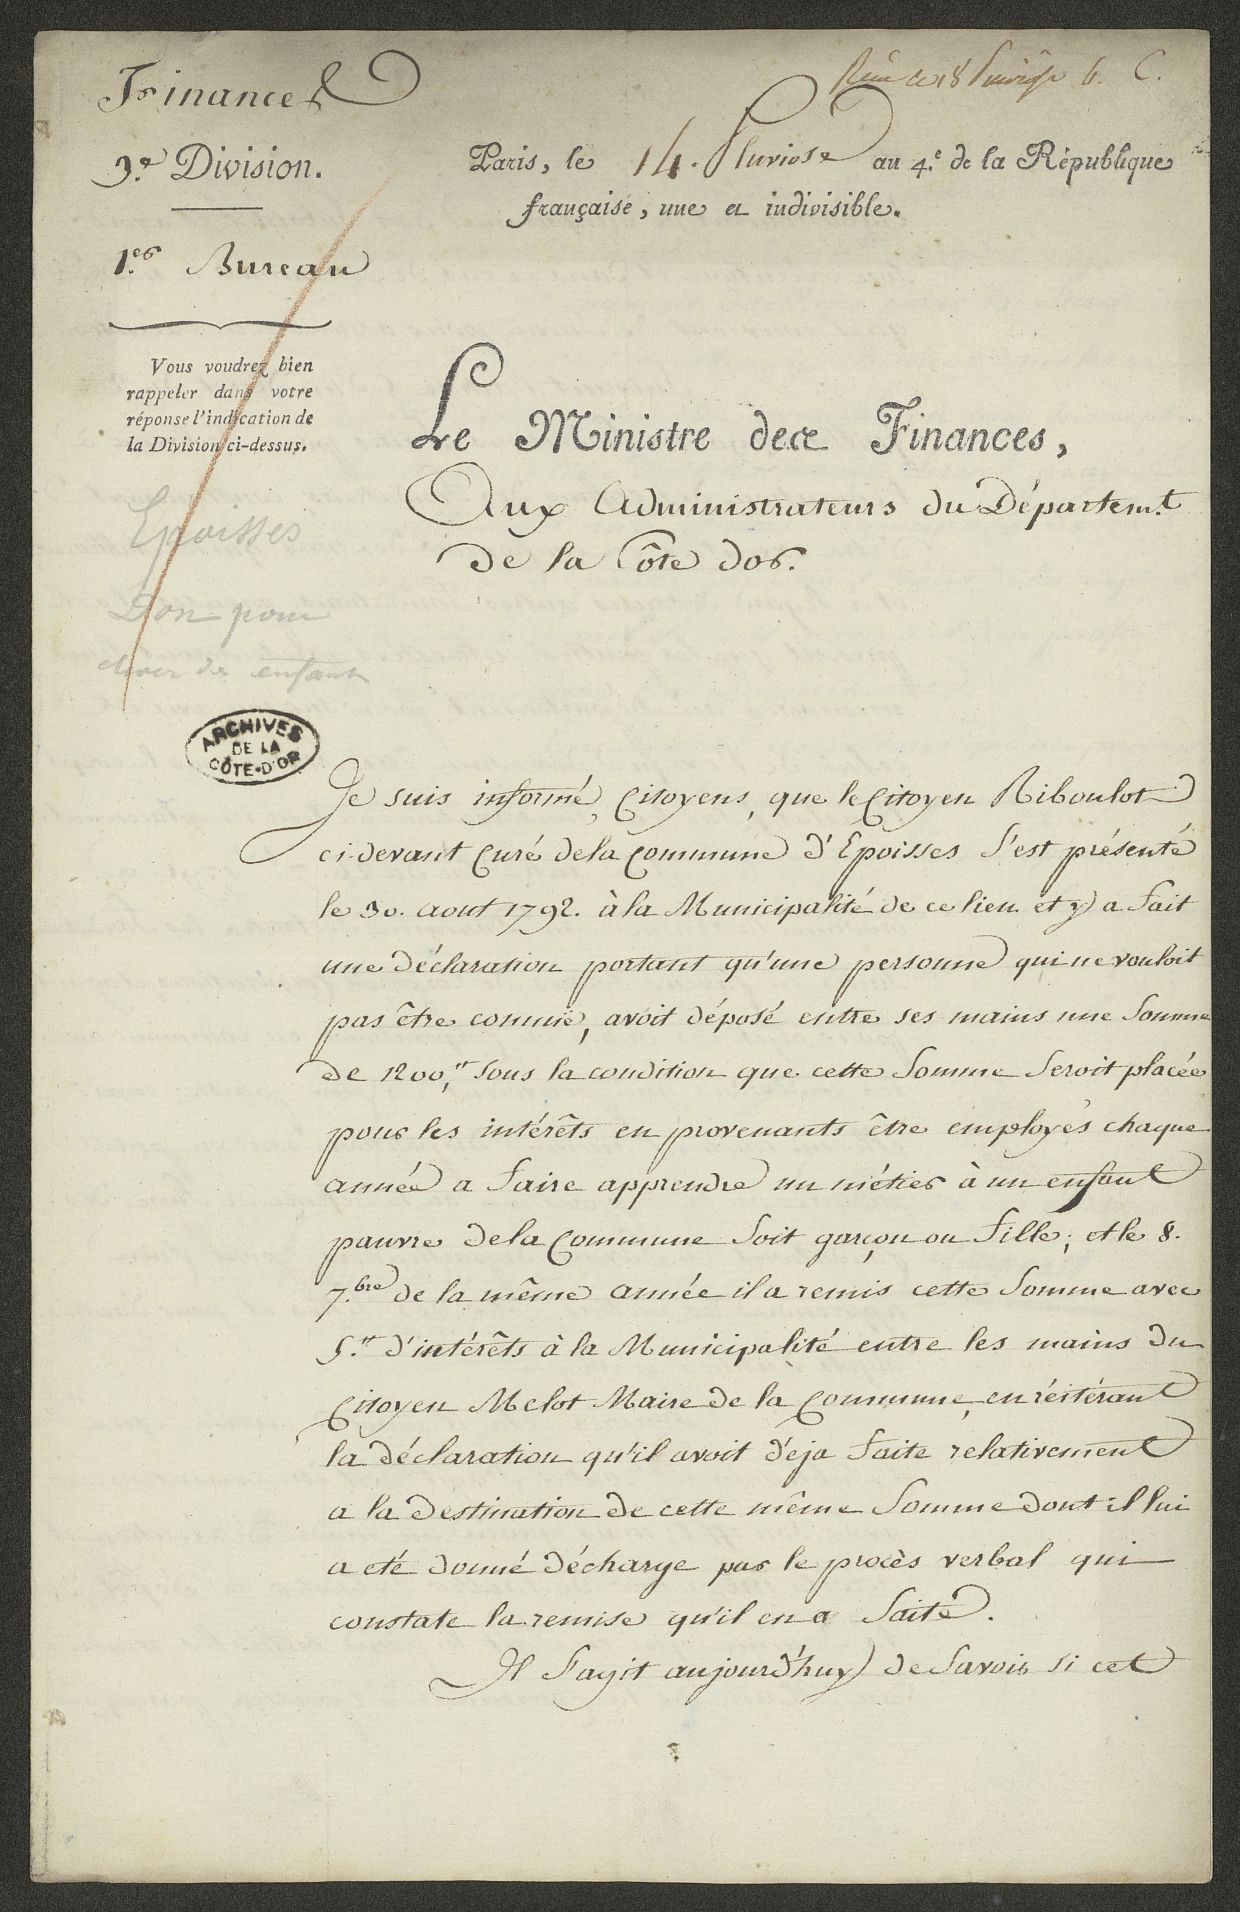 Finances
3.e Division.
1.er Bureau
Vous voudrez bien
rappeler dans votre
réponse l'indication de
la Division ci-dessus.
Epoisses
Don pour
élever des enfants
ARCHIVES
DE LA
CÔTE-D'OR
Paris, le 14. Pluviose au 4.e de la République
française, une et indivisible.
Le Ministre des Finances,
Aux Administrateurs du Départem.t
de la Côte d'or.
Je suis informé, Citoyens, que le Citoyen Riboulot
ci-devant Curé de la Commune d'Epoisses s'est présenté
le 30. aout 1792. à la Municipalité de ce lieu et y a fait
une déclaration portant qu'une personne qui ne vouloit
pas être connue, avoit déposé entre ses mains une Somme
de 1200,tt sous la condition que cette Somme seroit placée
pour les intérêts en provenants être employés chaque
année a faire apprendre un métier à un enfant
pauvre de la Commune soit garçon ou fille; et le 8.
7.bre de la même année il a remis cette Somme avec
5.tt d'intérêts à la Municipalité entre les mains du
Citoyen Melot Maire de la Commune, en réitérant
la déclaration qu'il avoit déja faite relativement
a la destination de cette même Somme dont il lui
a eté donné décharge par le procès verbal qui
constate la remise qu'il en a faite.
Il s'agit aujourd'huy de savoir si cet